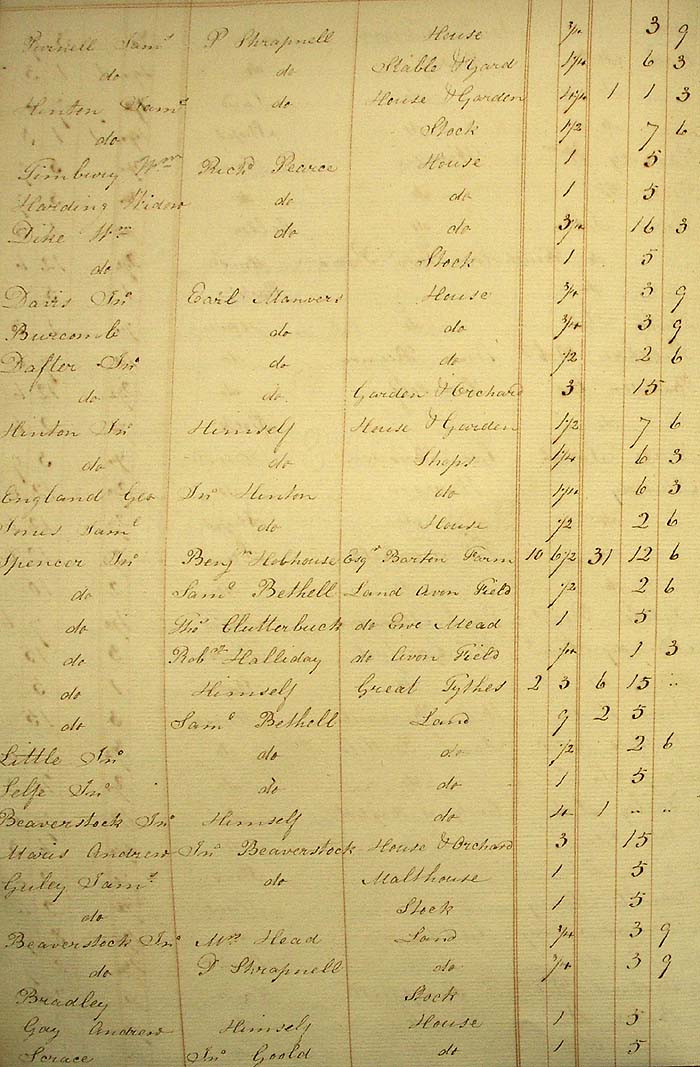 Purnell Sam^l P Shrapnell House 3/4 3 9
do do Stable & Gard 1 1/4 6 3
Hinton Sam^l do House & Garden 4 1/4 1 1 3
do Stock 1 1/2 7 6
Timbury W^m Rich^d Pearce House 1 5
Harding Widow do do 1 5
Dike W^m do do 3 1/4 16 3
do Stock 1 5
Davis Jn^o Earl Manvers House 3/4 3 9
Burcomb do do 3/4 3 9
Dafter Jn^o do do 1/2 2 6
do do Garden & Orchard 3 15
Hinton Jn^o Himself House & Garden 1 1/2 7 6
do do Shops 1 1/4 6 3
England Geo Jn^o Hinton do 1 1/4 6 3
Jones Sam^l do House 1/2 2 6
Spencer Jn^o Benj^n Hobhouse Esq^r Barton Farm 10 6 1/2 31 12 6
do Sam^l Bethell Land Avon Field 1/2 2 6
do Tho^s Clutterbuck do Ewe Mead 1 5
do Rob^t Halliday do Avon Field 1/4 1 3
do Himself Great Tythes 2 3 6 15 ..
do Sam^l Bethell Land 9 2 5
Little Jn^o do do 1/2 2 6
Selfe Jn^o do do 1 5
Beaverstock Jn^o Himself do 4 1 .. ..
Maris Andrew Jn^o Beaverstock House & Orchard 3 15
Guley Sam^l do Malthouse 1 5
do Stock 1 5
Beaverstock Jn^o M^rs Head Land 3/4 3 9
do P Shrapnell do 3/4 3 9
Bradley Stock
Gay Andrew Himself House 1 5
Scrace Jn^o Goold do 1 5